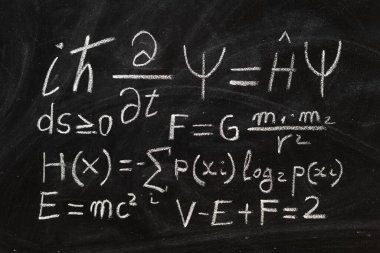 iℏ ∂/∂t Ψ = ĤΨ
ds≥0 F=G m₁·m₂/r²
H(x)=-∑ᵢ p(xᵢ)log₂p(xᵢ)
E=mc² V-E+F=2